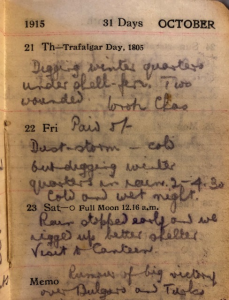 1915 31 Days OCTOBER
21 Th—Trafalgar Day, 1805
Digging winter quarters
under shell-fire. Two
wounded. Chas
22 Fri Paid 5/-
Dust-storm - cold
but digging winter
quarters in rain. 2-4.30
Cold and wet night.
23 Sat—O Full Moon 12.16 a.m.
Rain stopped early and we
rigged up better shelter
Visit to Canteen
Memo Rumour of big victory
over Bulgars and Turks